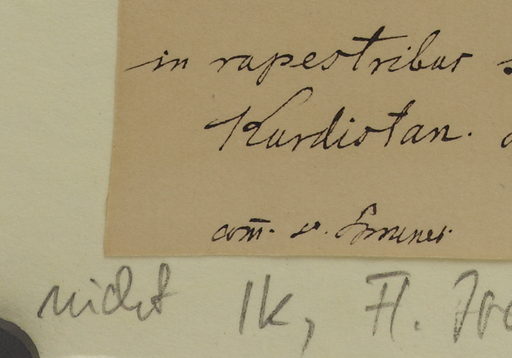 in rupestribus
Kurdistan.
com. v.
nicht IK, Fl.